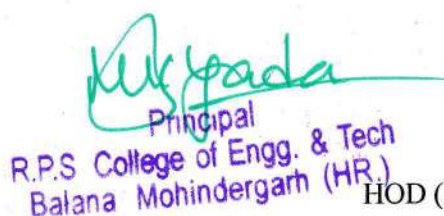 Principal
R.P.S College of Engg. & Tech
Balana Mohindergarh (HR.)
HOD (